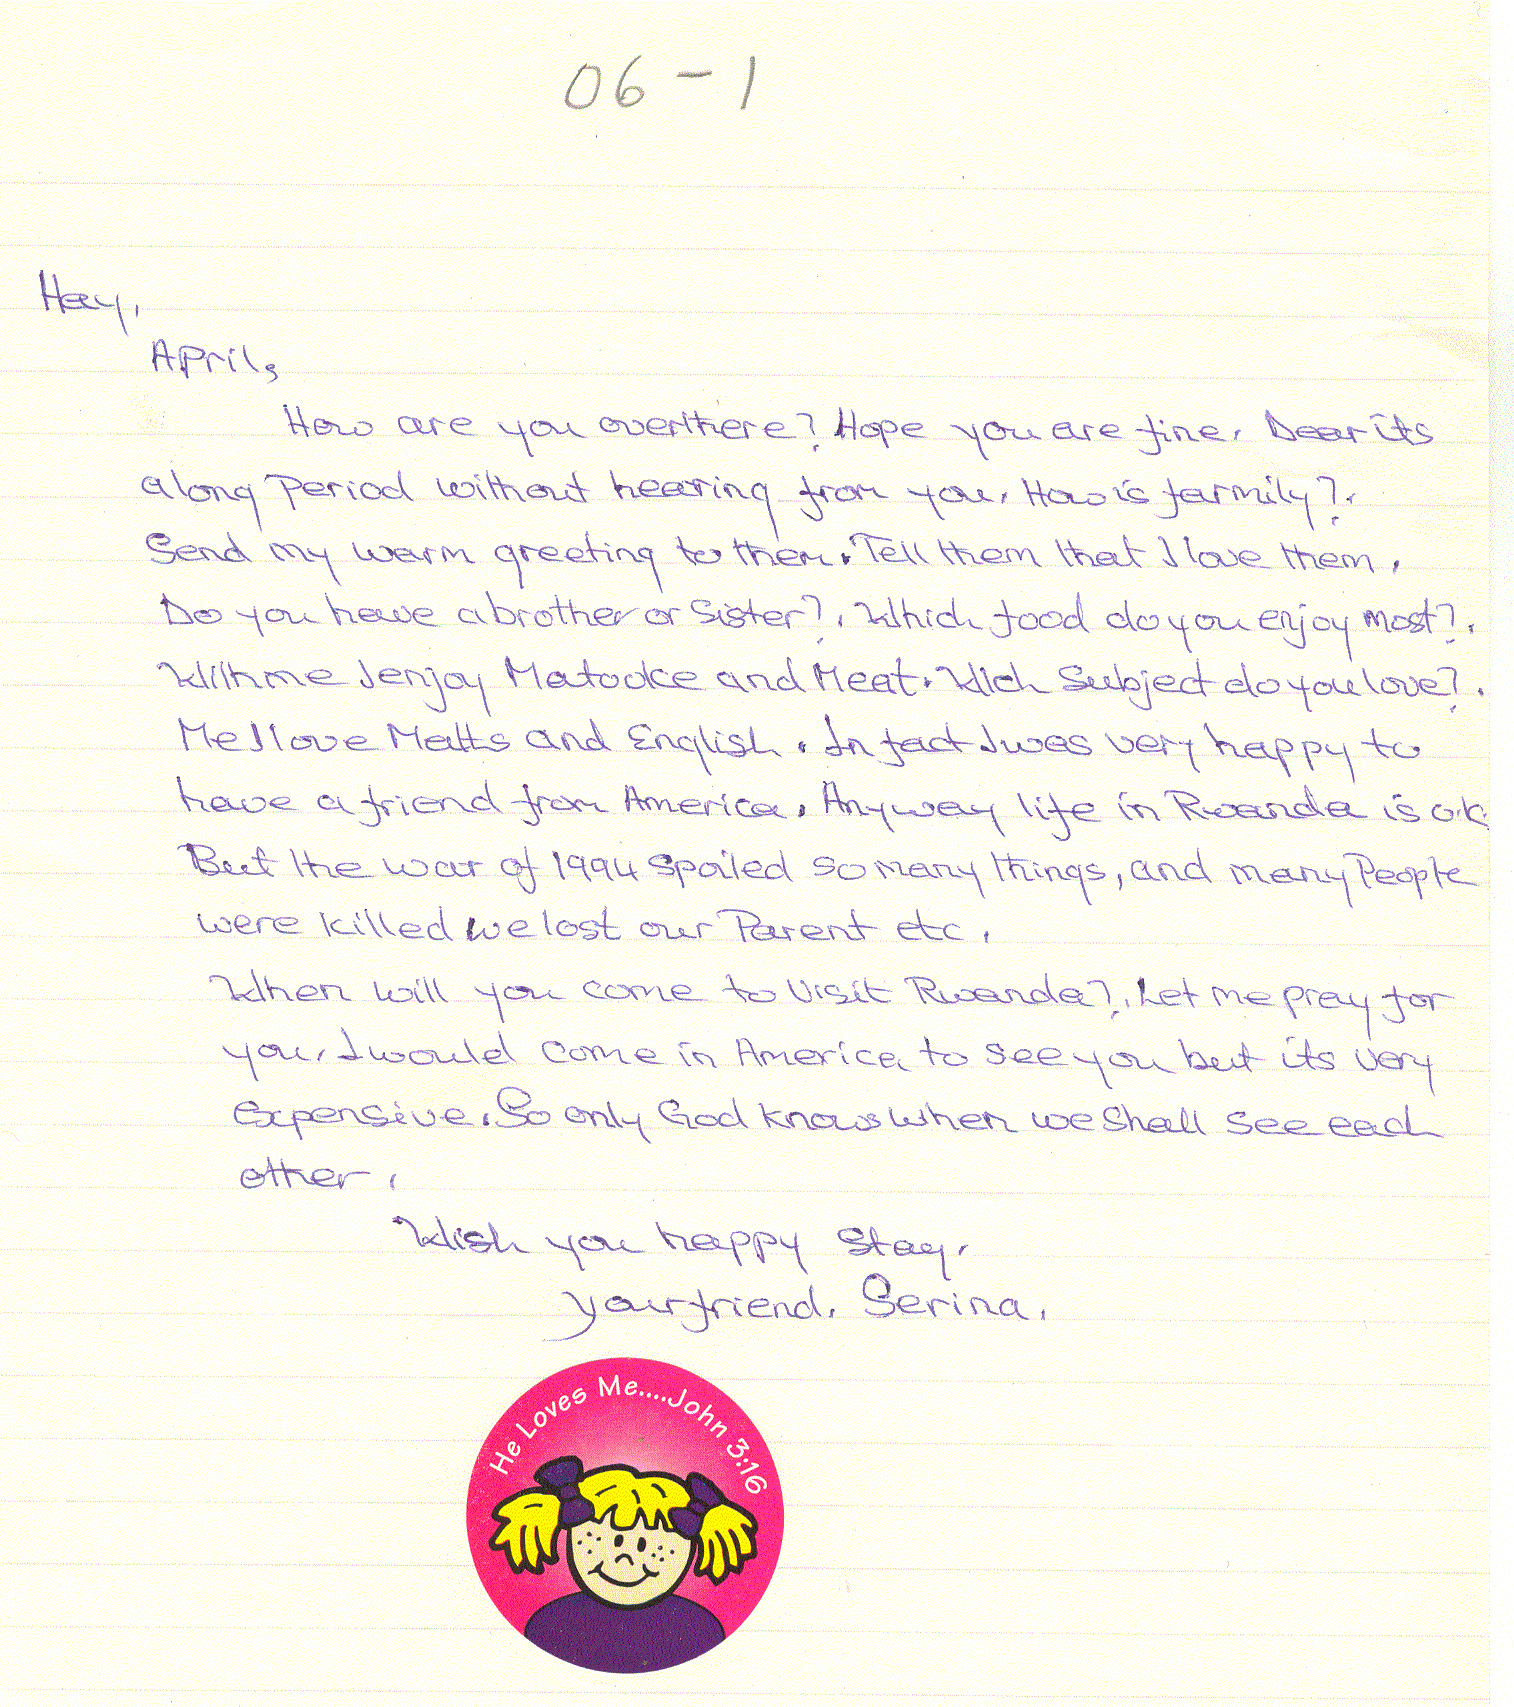 06-1
Hay,
April,
How are you overthere? Hope you are fine. Dear its
along Period without hearing from you. How is farmily?.
Send my warm greeting to them. Tell them that I love them.
Do you have a brother or Sister?. Which food do you enjoy most?.
With me I enjoy Matooke and Meat. Wich Subject do you love?.
Me I love Maths and English. In fact I was very happy to
have a friend from America. Anyway life in Rwanda is o.k
But the war of 1994 spoiled so many things, and many People
were killed we lost our Parent etc.
When will you come to visit Rwanda?. Let me pray for
you. I would come in America to see you but its very
Expensive. So only God knows when we shall see each
other.
Wish you happy stay.
your friend. Serina.
He Loves Me....John 3:16